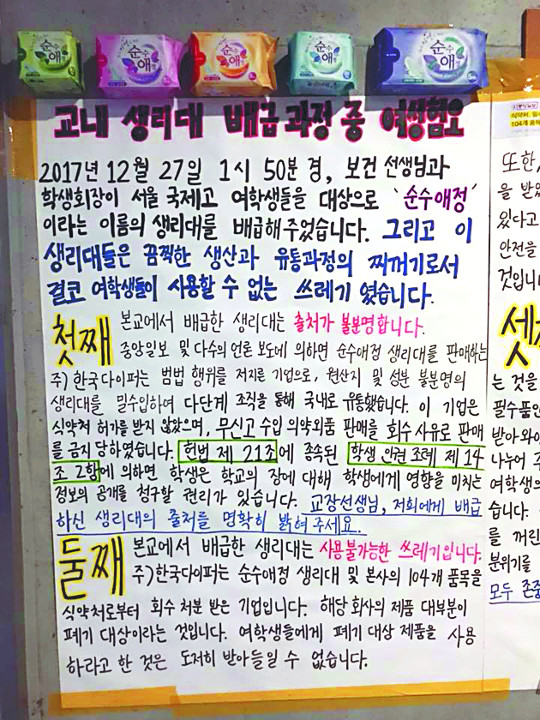 순수애
순수애
순수애
순수애
순수애
교내 생리대 배급 과정 중 여성혐오
2017년 12월 27일 1시 50분 경, 보건 선생님과
학생회장이 서울 국제고 여학생들을 대상으로 '순수애정'
이라는 이름의 생리대를 배급해 주었습니다. 그리고 이
생리대들은 끔찍한 생산과 유통과정의 찌꺼기로서
결코 여학생들이 사용할 수 없는 쓰레기 였습니다.
첫째 본교에서 배급한 생리대는 출처가 불분명합니다.
중앙일보 및 다수의 언론 보도에 의하면 순수애정 생리대를 판매하는
주) 한국다이퍼는 범법 행위를 저지른 기업으로, 원산지 및 성분 불분명의
생리대를 밀수입하여 다단계 조직을 통해 국내로 유통했습니다. 이 기업은
식약처 허가를 받지 않았으며, 무신고 수입 의약외품 판매를 회수 사유로 판매
를 금지 당하였습니다. 헌법 제 21조에 종속된 학생 인권 조례 제 14
조 2항에 의하면 학생은 학교의 장에 대해 학생에게 영향을 미치는
정보의 공개를 청구할 권리가 있습니다. 교장선생님, 저희에게 배급
하신 생리대의 출처를 명확히 밝혀 주세요.
둘째 본교에서 배급한 생리대는 사용불가능한 쓰레기입니다.
주)한국다이퍼는 순수애정 생리대 및 본사의 104개 품목을
식약처로부터 회수 처분 받은 기업입니다. 해당 회사의 제품 대부분이
폐기 대상이라는 것입니다. 여학생들에게 폐기 대상 제품을 사용
하라고 한 것은 도저히 받아들일 수 없습니다.
104개
또한,
을 받았
있다고
안전을
것입니
셋
는 것을
필수품인
받아와야
나누어 주
여학생의
습니다.
를 꺼린
분위기를
모두 존중